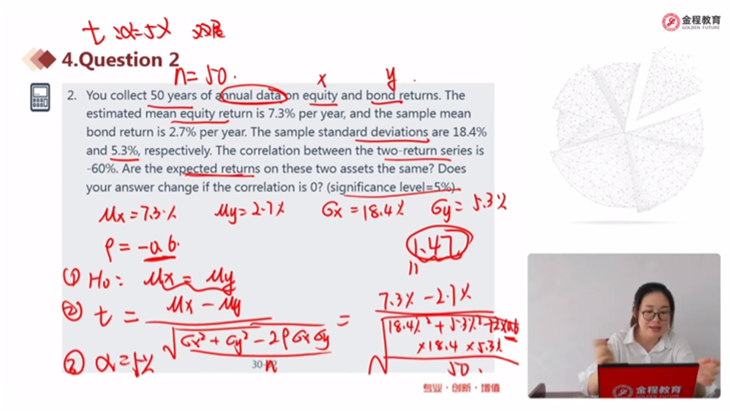 t α=5% 双尾
金程教育
GOLDEN FUTURE
4.Question 2
n=50.
x y.
2. You collect 50 years of annual data on equity and bond returns. The
estimated mean equity return is 7.3% per year, and the sample mean
bond return is 2.7% per year. The sample standard deviations are 18.4%
and 5.3%, respectively. The correlation between the two-return series is
-60%. Are the expected returns on these two assets the same? Does
your answer change if the correlation is 0? (significance level=5%)
μx=7.3% μy=2.7% σx=18.4% σy=5.3%
ρ=-0.6. 1.47
① H₀: μx = μy
② t = μx-μy = 7.3%-2.7%
√ σx²+σy²-2ρσxσy √ 18.4%²+5.3%²
×18.4×5.3%
③ α=5% n 50.
30-
专业·创新·增值
金程教育
GOLDEN FUTURE